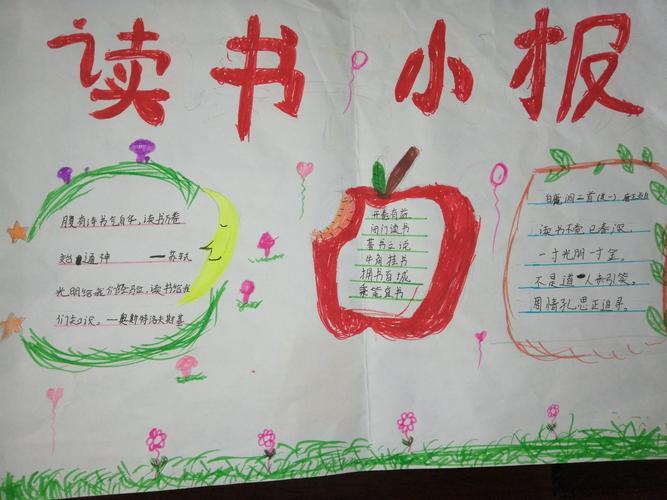 读书小报
腹有诗书气自华，读书万卷
始通神 ——苏轼
光阴给我们经验，读书给我
们知识。——奥斯特洛夫斯基
开卷有益
闭门读书
著书立说
牛角挂书
拥书百城
秉笔直书
白鹿洞二首(其一)
读书不觉已春深，
一寸光阴一寸金。
不是道人来引笑，
周情孔思正追寻。